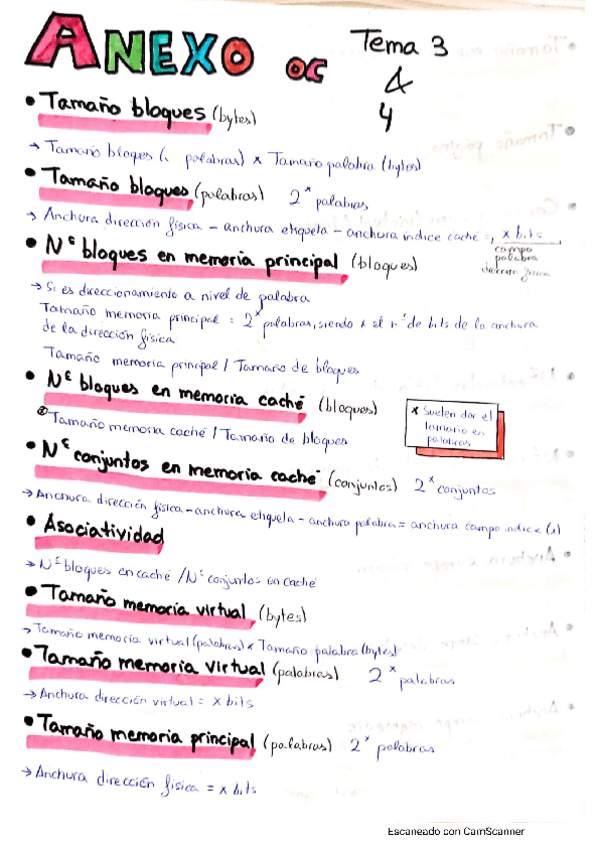 ANEXO OC Tema 3
&
4
• Tamaño bloques (bytes)
→ Tamaño bloqes (. palabras) x Tamaño palabra (bytes)
• Tamaño bloques (palabras) 2^x palabras
→ Anchura dirección física - anchura etiqueta - anchura indice caché =, x bits
campo
palabra
dirección física
• Nº bloques en memoria principal (bloques)
→ Si es direccionamiento a nivel de palabra
Tamaño memoria principal = 2^x palabras, siendo x el nº de bits de la anchura
de la dirección física
Tamaño memoria principal / Tamaño de bloques
• Nº bloques en memoria caché (bloques)
* Suelen dar el
tamaño en
palabras
Tamaño memoria caché / Tamaño de bloques
• Nº conjuntos en memoria caché (conjuntos) 2^x conjuntos
→ Anchura dirección física - anchura etiqueta - anchura palabra = anchura campo indice (x)
• Asociatividad
→ Nº bloques en caché / Nº conjuntos en caché
• Tamaño memoria virtual (bytes)
→ Tamaño memoria virtual (palabras) x Tamaño palabra (bytes)
• Tamaño memoria virtual (palabras) 2^x palabras
→ Anchura dirección virtual = x bits
• Tamaño memoria principal (palabras) 2^x palabras
→ Anchura dirección física = x bits
Escaneado con CamScanner